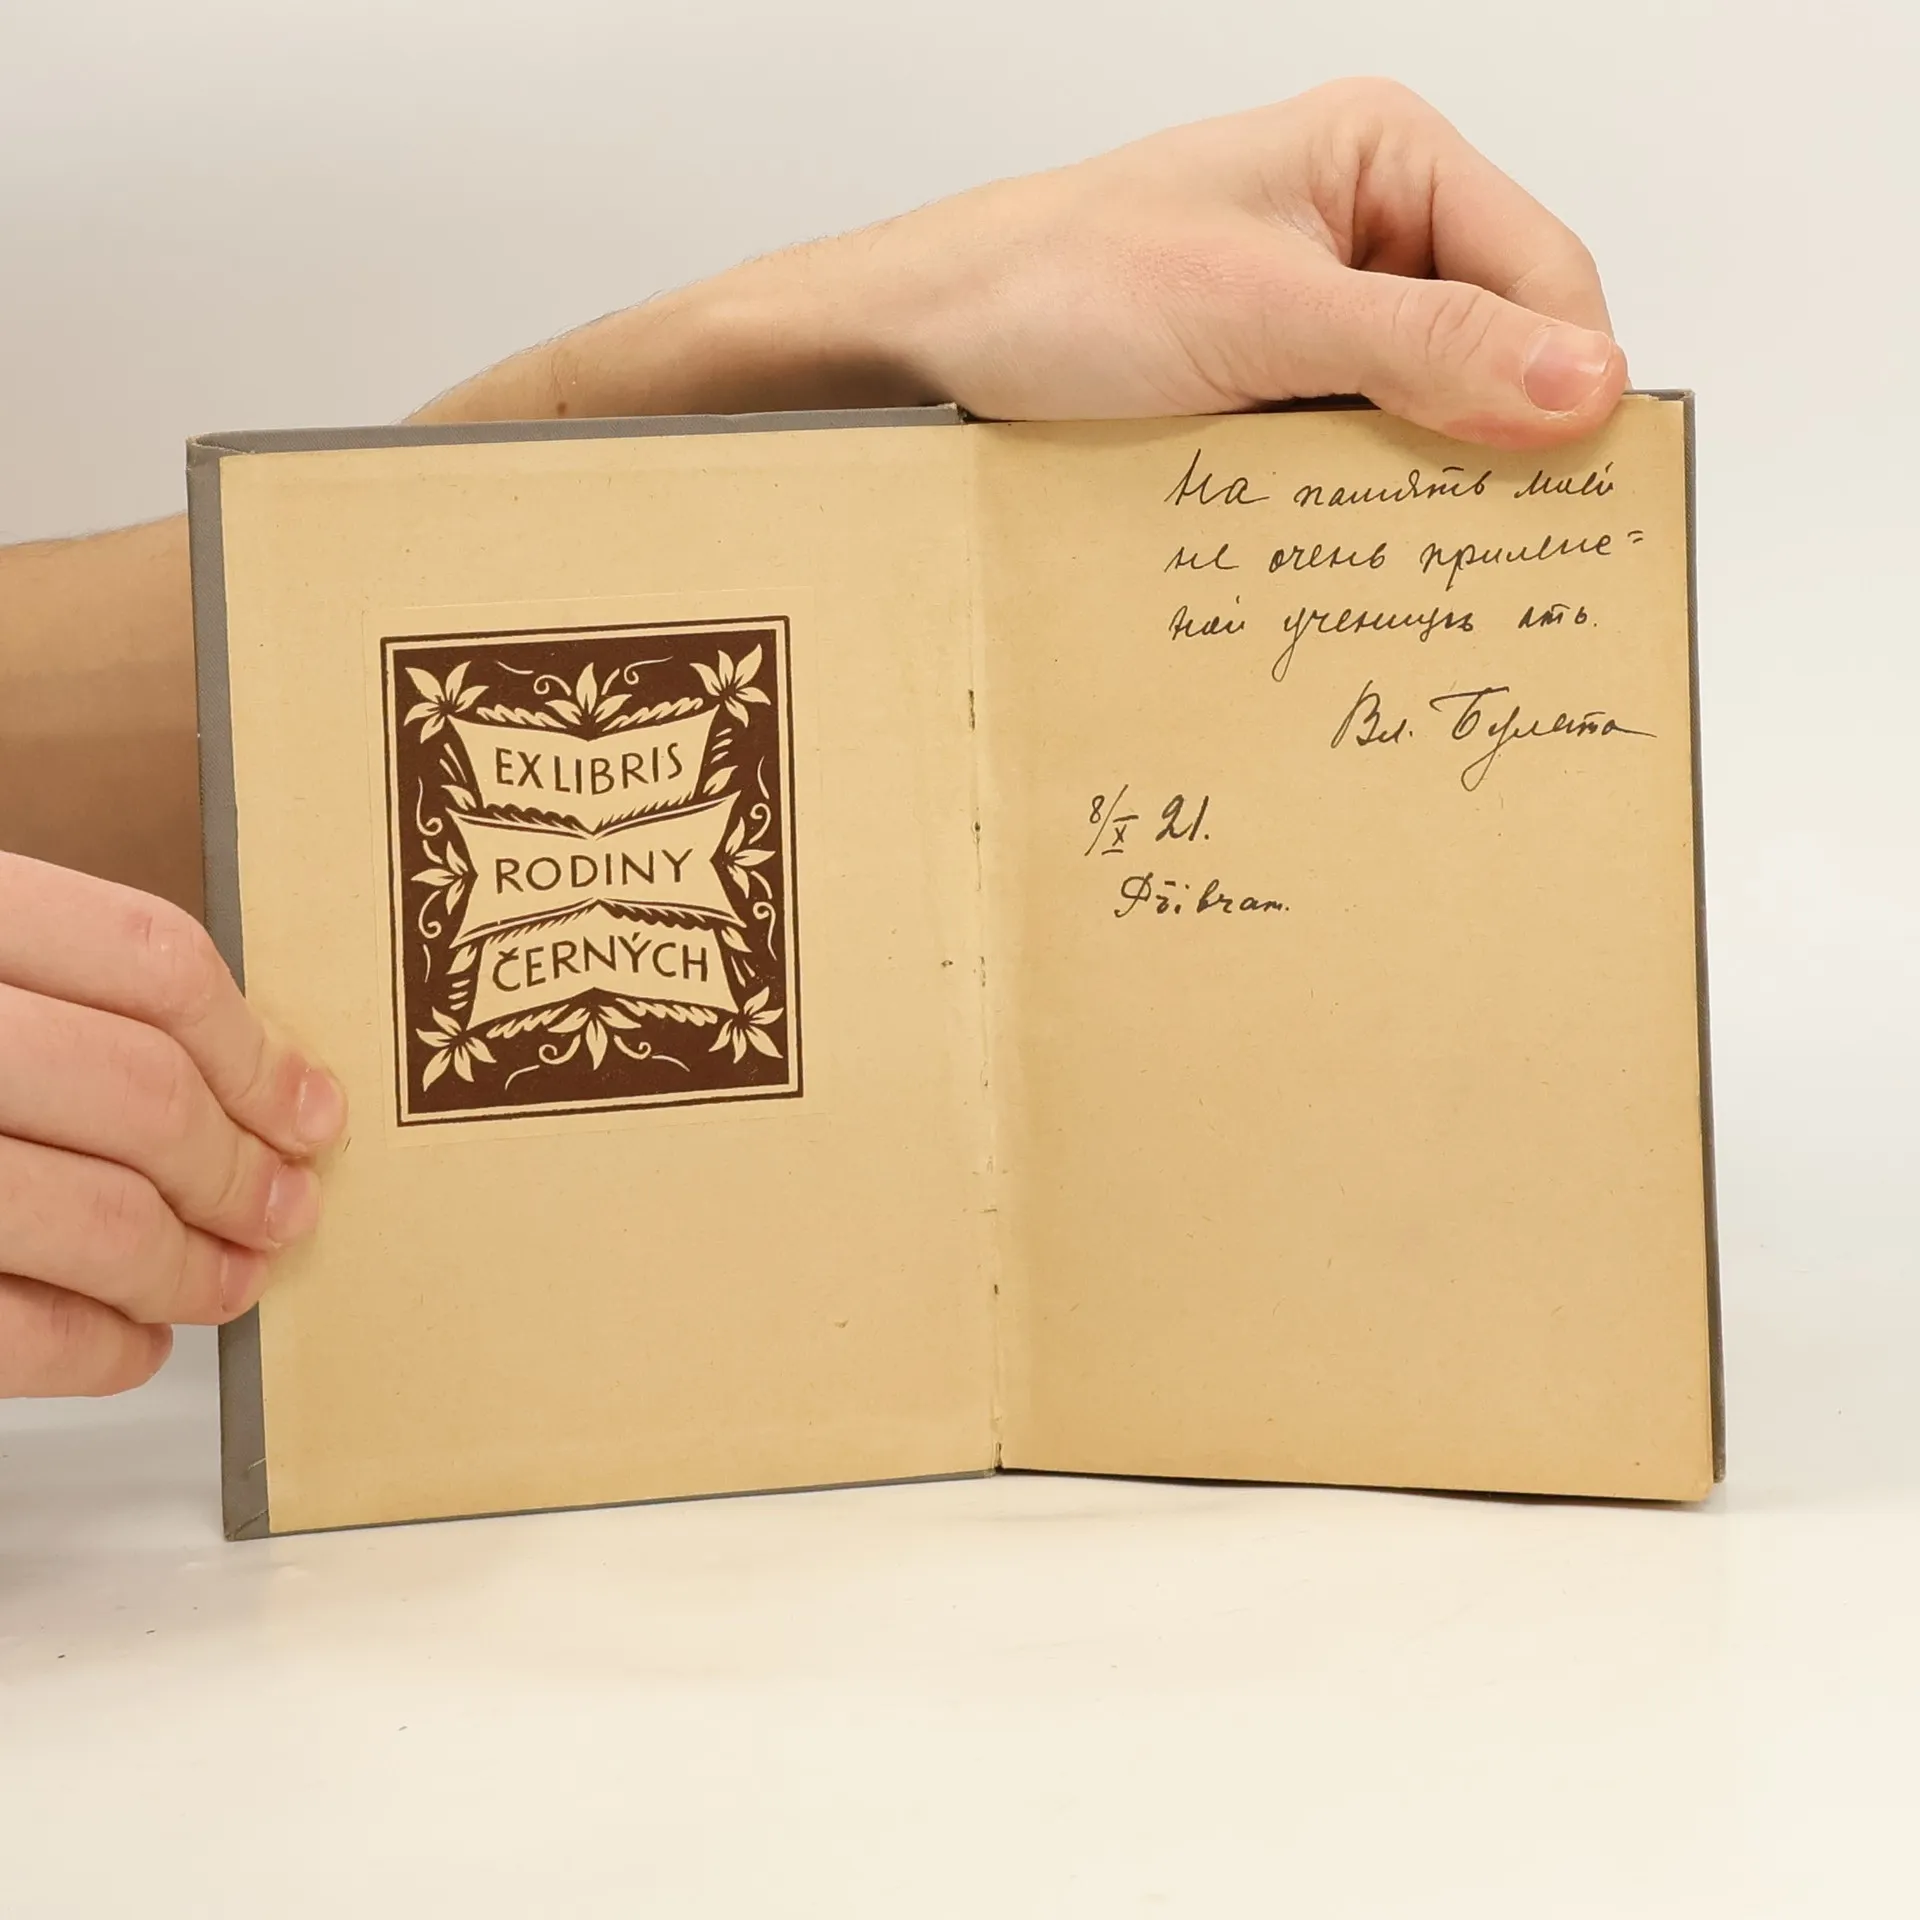 EX LIBRIS
RODINY
ČERNÝCH
На память моей
не очень прилеже=
ной ученицѣ отъ.
Вл. Булата
8/X 21.
Příbram.